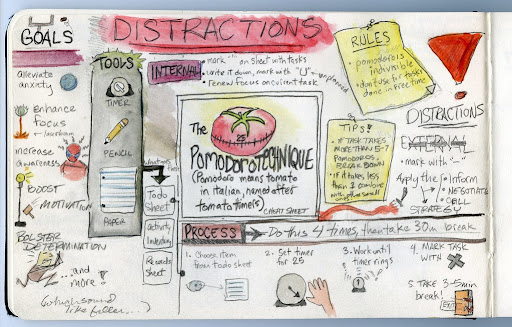 GOALS
alleviate
anxiety
enhance
focus
increase
awareness
BOOST
MOTIVATION
BOLSTER
DETERMINATION
...and
more!
TOOLS
TIMER
PENCIL
PAPER
Todo
Sheet
Activity
Inventory
Records
Sheet
DISTRACTIONS
INTERNAL
mark "'" on sheet with tasks
write it down, mark with "U" - unplanned
renew focus on current task
The
POMODORO TECHNIQUE
(Pomodoro means tomato
in italian, named after
tomato timers)
CHEAT SHEET
RULES
pomodoro is
indivisible
don't use for tasks
done in free time
TIPS!
IF TASK TAKES
MORE THAN 5-7
POMODOROS,
BREAK DOWN
If it takes less
than 1 combine
with other small
ones
DISTRACTIONS
EXTERNAL
mark with "-"
Apply the
Inform
NEGOTIATE
CALL
STRATEGY
PROCESS
Do this 4 times, then take 30m break
1. Choose item
from todo sheet
2. Set timer
for 25
3. Work until
timer rings
4. MARK TASK
WITH X
5. TAKE 3-5min
break!
EXIT